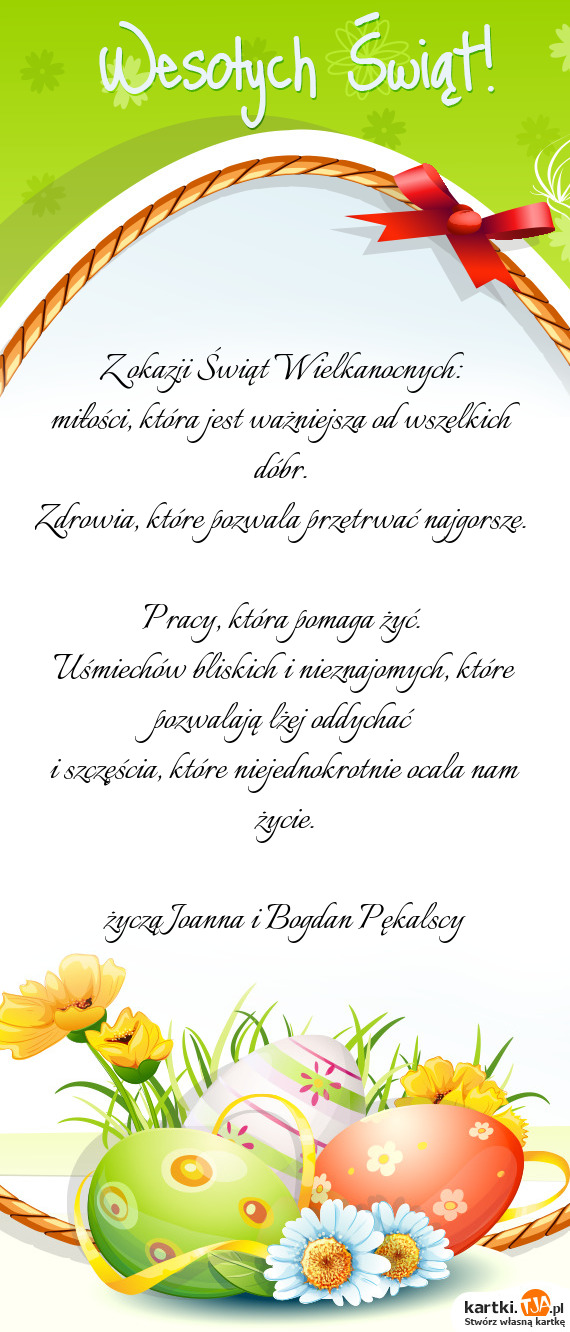 Wesołych Świąt!
Z okazji Świąt Wielkanocnych:
miłości, która jest ważniejsza od wszelkich
dóbr.
Zdrowia, które pozwala przetrwać najgorsze.
Pracy, która pomaga żyć.
Uśmiechów bliskich i nieznajomych, które
pozwalają lżej oddychać
i szczęścia, które niejednokrotnie ocala nam
życie.
życzą Joanna i Bogdan Pękalscy
kartki.TJA.pl
Stwórz własną kartkę